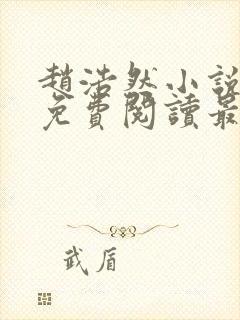 趙浩然小說
免費閱讀最
武盾